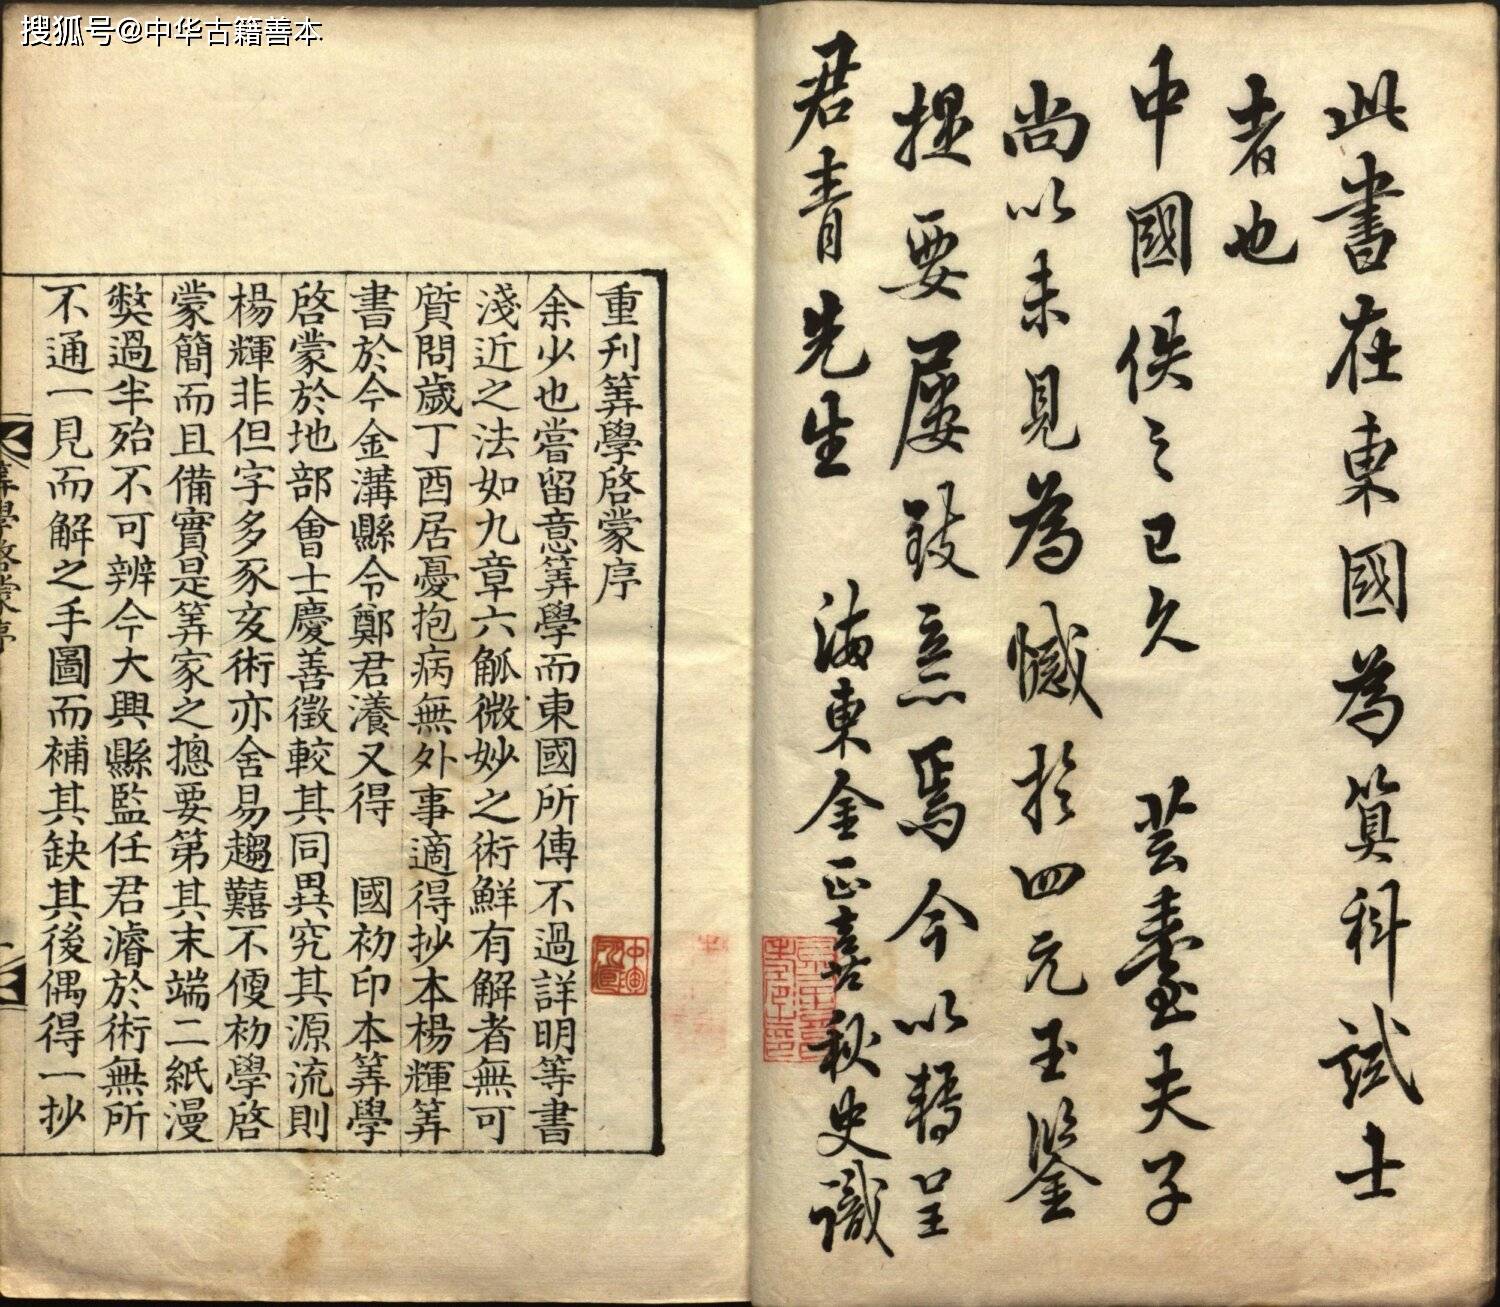 搜狐号@中华古籍善本
此書在東國為筭科試士
者也
中國佚之已久 芸臺夫子
尚以未見為憾於四元玉鑒
提要屢致意焉今以轉呈
君青先生 海東金正喜秋史識
重刊筭學啓蒙序
余少也嘗留意筭學而東國所傳不過詳明等書
淺近之法如九章六觚微妙之術鮮有解者無可
質問歲丁酉居憂抱病無外事適得抄本楊輝筭
書於今金溝縣令鄭君瀁又得 國初印本筭學
啓蒙於地部會士慶善徵較其同異究其源流則
楊輝非但字多豕亥術亦舍易趨囏不便初學啓
蒙簡而且備實是筭家之摠要第其末端二紙漫
獘過半殆不可辨今大興縣監任君濬於術無所
不通一見而解之手圖而補其缺其後偶得一抄
筭學啓蒙序